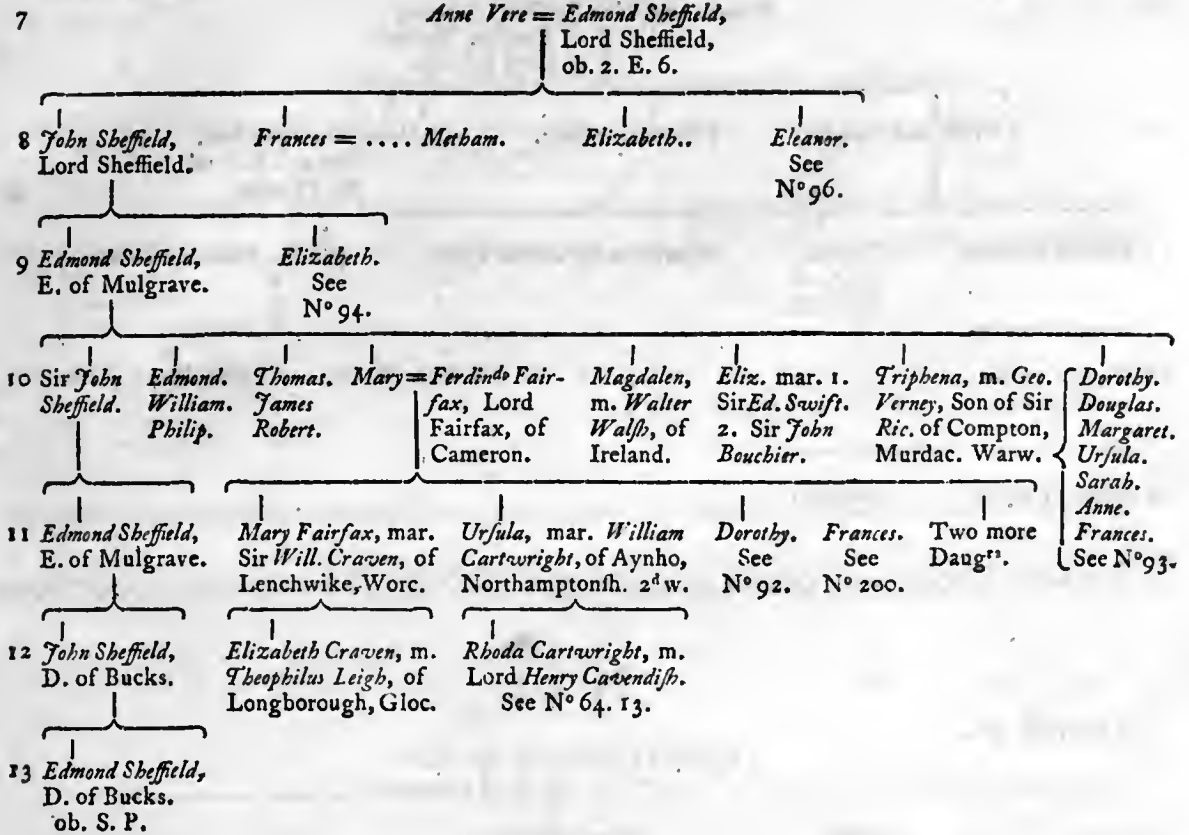 7 Anne Vere = Edmond Sheffield,
Lord Sheffield,
ob. 2. E. 6.
8 John Sheffield,
Lord Sheffield.
Frances = .... Metham.
Elizabeth..
Eleanor.
See
No 96.
9 Edmond Sheffield,
E. of Mulgrave.
Elizabeth.
See
No 94.
10 Sir John
Sheffield.
Edmond.
William.
Philip.
Thomas.
James
Robert.
Mary = Ferdindo Fair-
fax, Lord
Fairfax, of
Cameron.
Magdalen,
m. Walter
Walſh, of
Ireland.
Eliz. mar. 1.
Sir Ed. Swift.
2. Sir John
Bouchier.
Triphena, m. Geo.
Verney, Son of Sir
Ric. of Compton,
Murdac. Warw.
Dorothy.
Douglas.
Margaret.
Urſula.
Sarah.
Anne.
Frances.
See No 93.
11 Edmond Sheffield,
E. of Mulgrave.
Mary Fairfax, mar.
Sir Will. Craven, of
Lenchwike, Worc.
Urſula, mar. William
Cartwright, of Aynho,
Northamptonſh. 2d w.
Dorothy.
See
No 92.
Frances.
See
No 200.
Two more
Daugrs.
12 John Sheffield,
D. of Bucks.
Elizabeth Craven, m.
Theophilus Leigh, of
Longborough, Gloc.
Rhoda Cartwright, m.
Lord Henry Cavendiſh.
See No 64. 13.
13 Edmond Sheffield,
D. of Bucks.
ob. S. P.